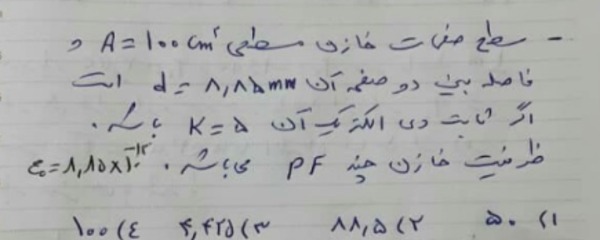 - سطح صفحات خازن مسطحی A = 100 cm² و
فاصله بین دو صفحه آن d = ۸,۸۵ mm است
اگر ثابت دی الکتریک آن K = ۵ باشد.
ظرفیت خازن چند PF می باشد. ε₀ = ۸,۸۵×۱۰⁻¹²
۱) ۵۰ ۲) ۸۸,۵ ۳) ۴,۴۲۵ ۴) ۱۰۰